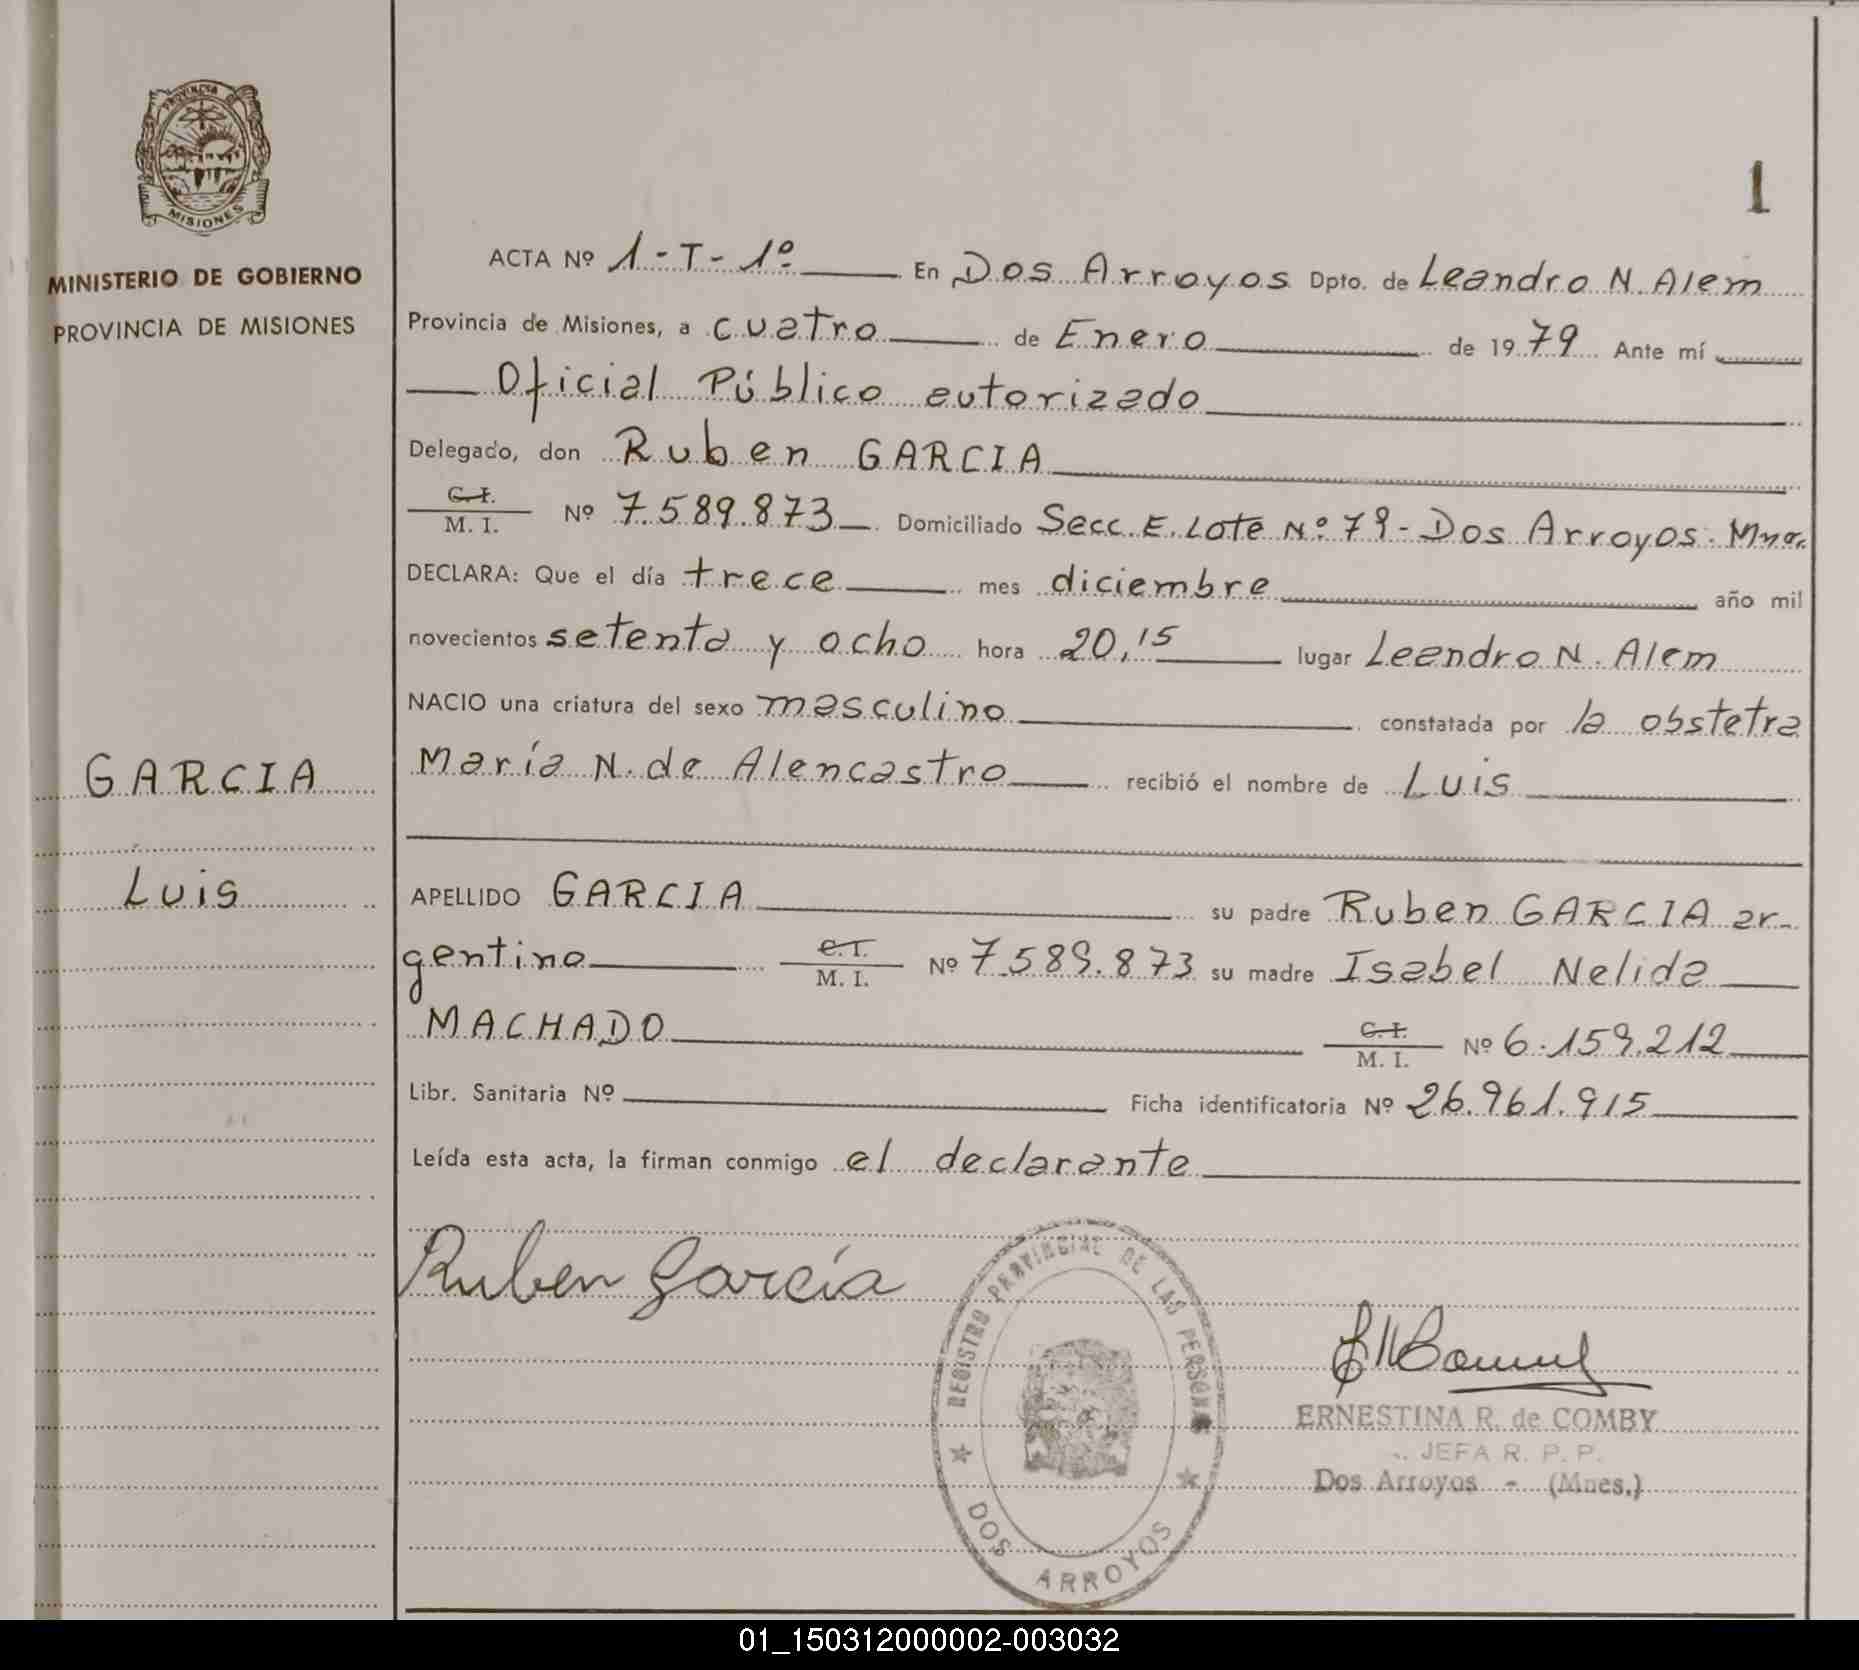 PROVINCIA DE
MISIONES
MINISTERIO DE GOBIERNO
PROVINCIA DE MISIONES
GARCIA
Luis
1
ACTA Nº 1-T-1º En Dos Arroyos Dpto. de Leandro N. Alem
Provincia de Misiones, a cuatro de Enero de 1979 Ante mí
Oficial Público autorizado
Delegado, don Ruben GARCIA
C.I. M.I. Nº 7.589.873 Domiciliado Secc. E. Lote Nº 79 - Dos Arroyos.
DECLARA: Que el día trece mes diciembre año mil
novecientos setenta y ocho hora 20,15 lugar Leandro N. Alem
NACIO una criatura del sexo masculino constatada por la obstetra
María N. de Alencastro recibió el nombre de Luis
APELLIDO GARCIA su padre Ruben GARCIA ar-
gentino C.I. M.I. Nº 7.589.873 su madre Isabel Nelida
MACHADO C.I. M.I. Nº 6.159.212
Libr. Sanitaria Nº Ficha identificatoria Nº 26.961.915
Leída esta acta, la firman conmigo el declarante
Ruben García
REGISTRO PROVINCIAL DE LAS PERSONAS
DOS ARROYOS
ERNESTINA R. de COMBY
JEFA R. P. P.
Dos Arroyos - (Mnes.)
01_150312000002-003032